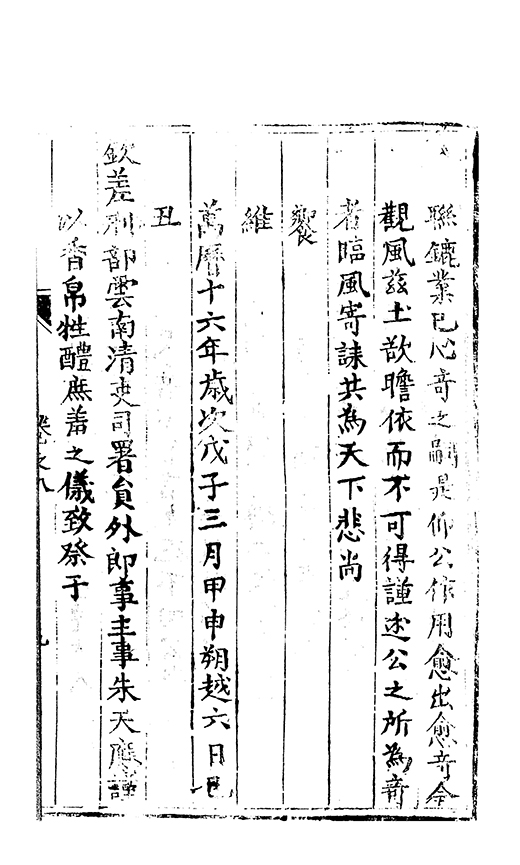 聯鑣業已心奇之嗣是仰公作用愈出愈奇今
觀風茲土欲瞻依而不可得謹述公之所為奇
者臨風寄誄共為天下悲尚
饗
維
萬曆十六年歲次戊子三月甲申朔越六日己
丑
欽差刑部雲南清吏司署員外郎事主事朱天應謹
以香帛牲醴庶羞之儀致祭于
卷之八
九